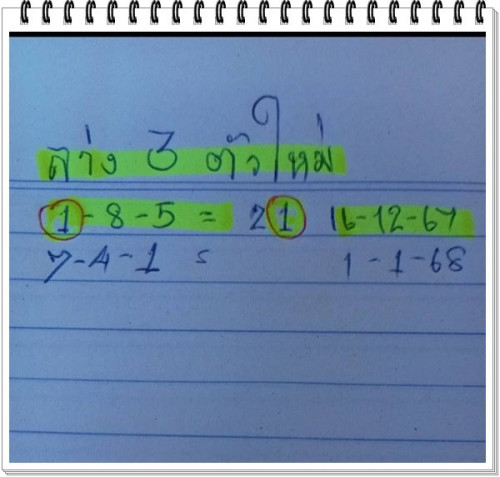 ล่าง 3 ตัวใหม่
1-8-5 = 21 16-12-67
7-4-1 = 1-1-68